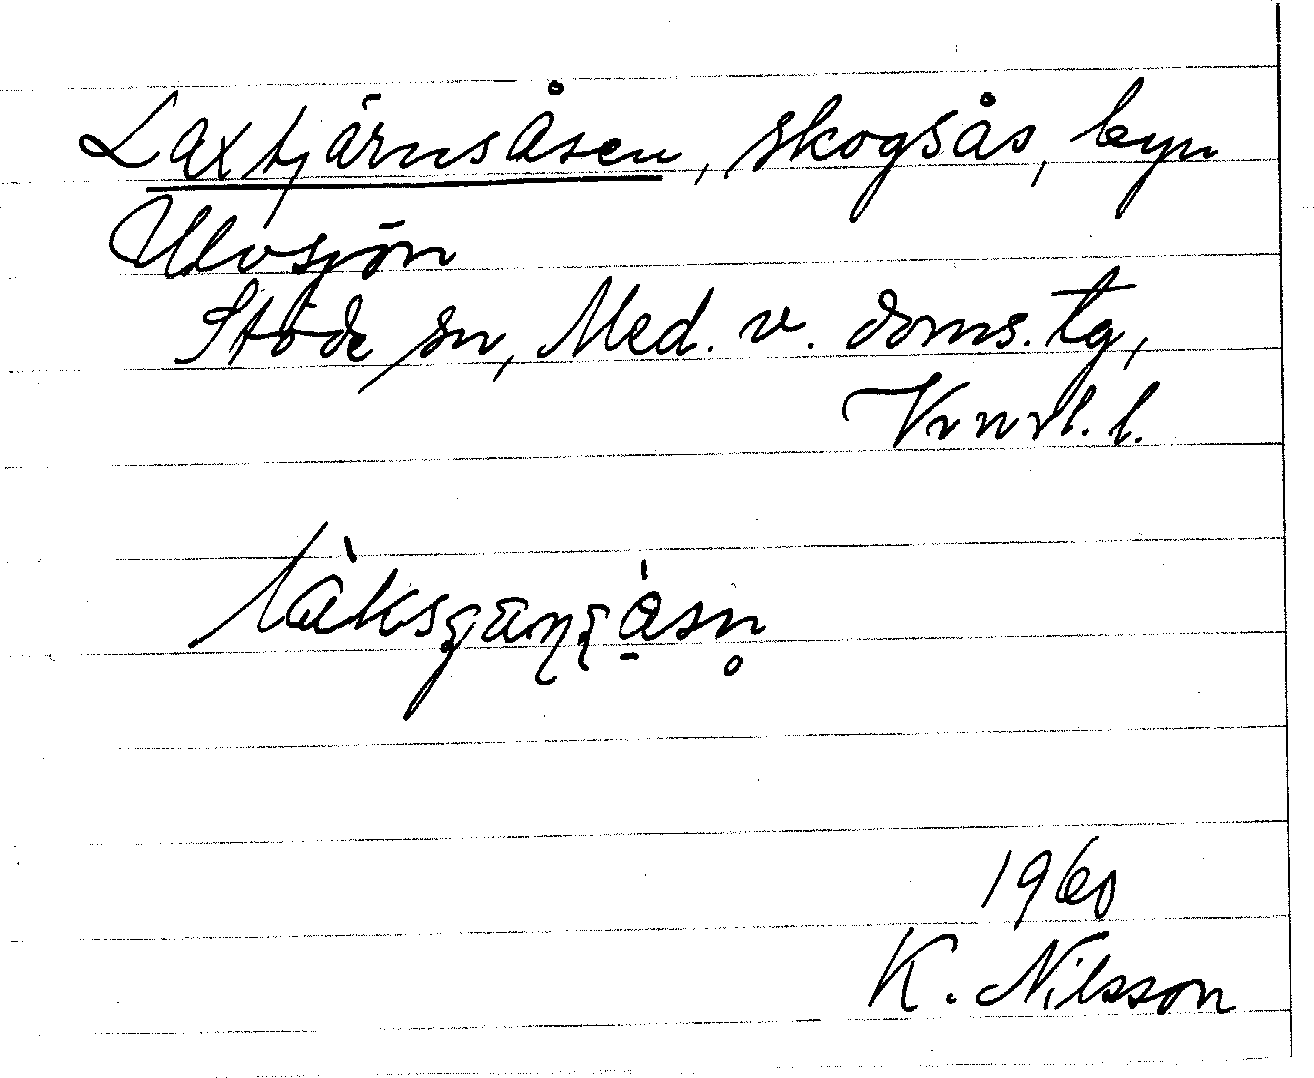 Laxtjärnsåsen, skogsås, byn
Ulvsjön
Stöde sn, Med. v. doms. tg,
Vrnrl. l.
1960
K. Nilsson